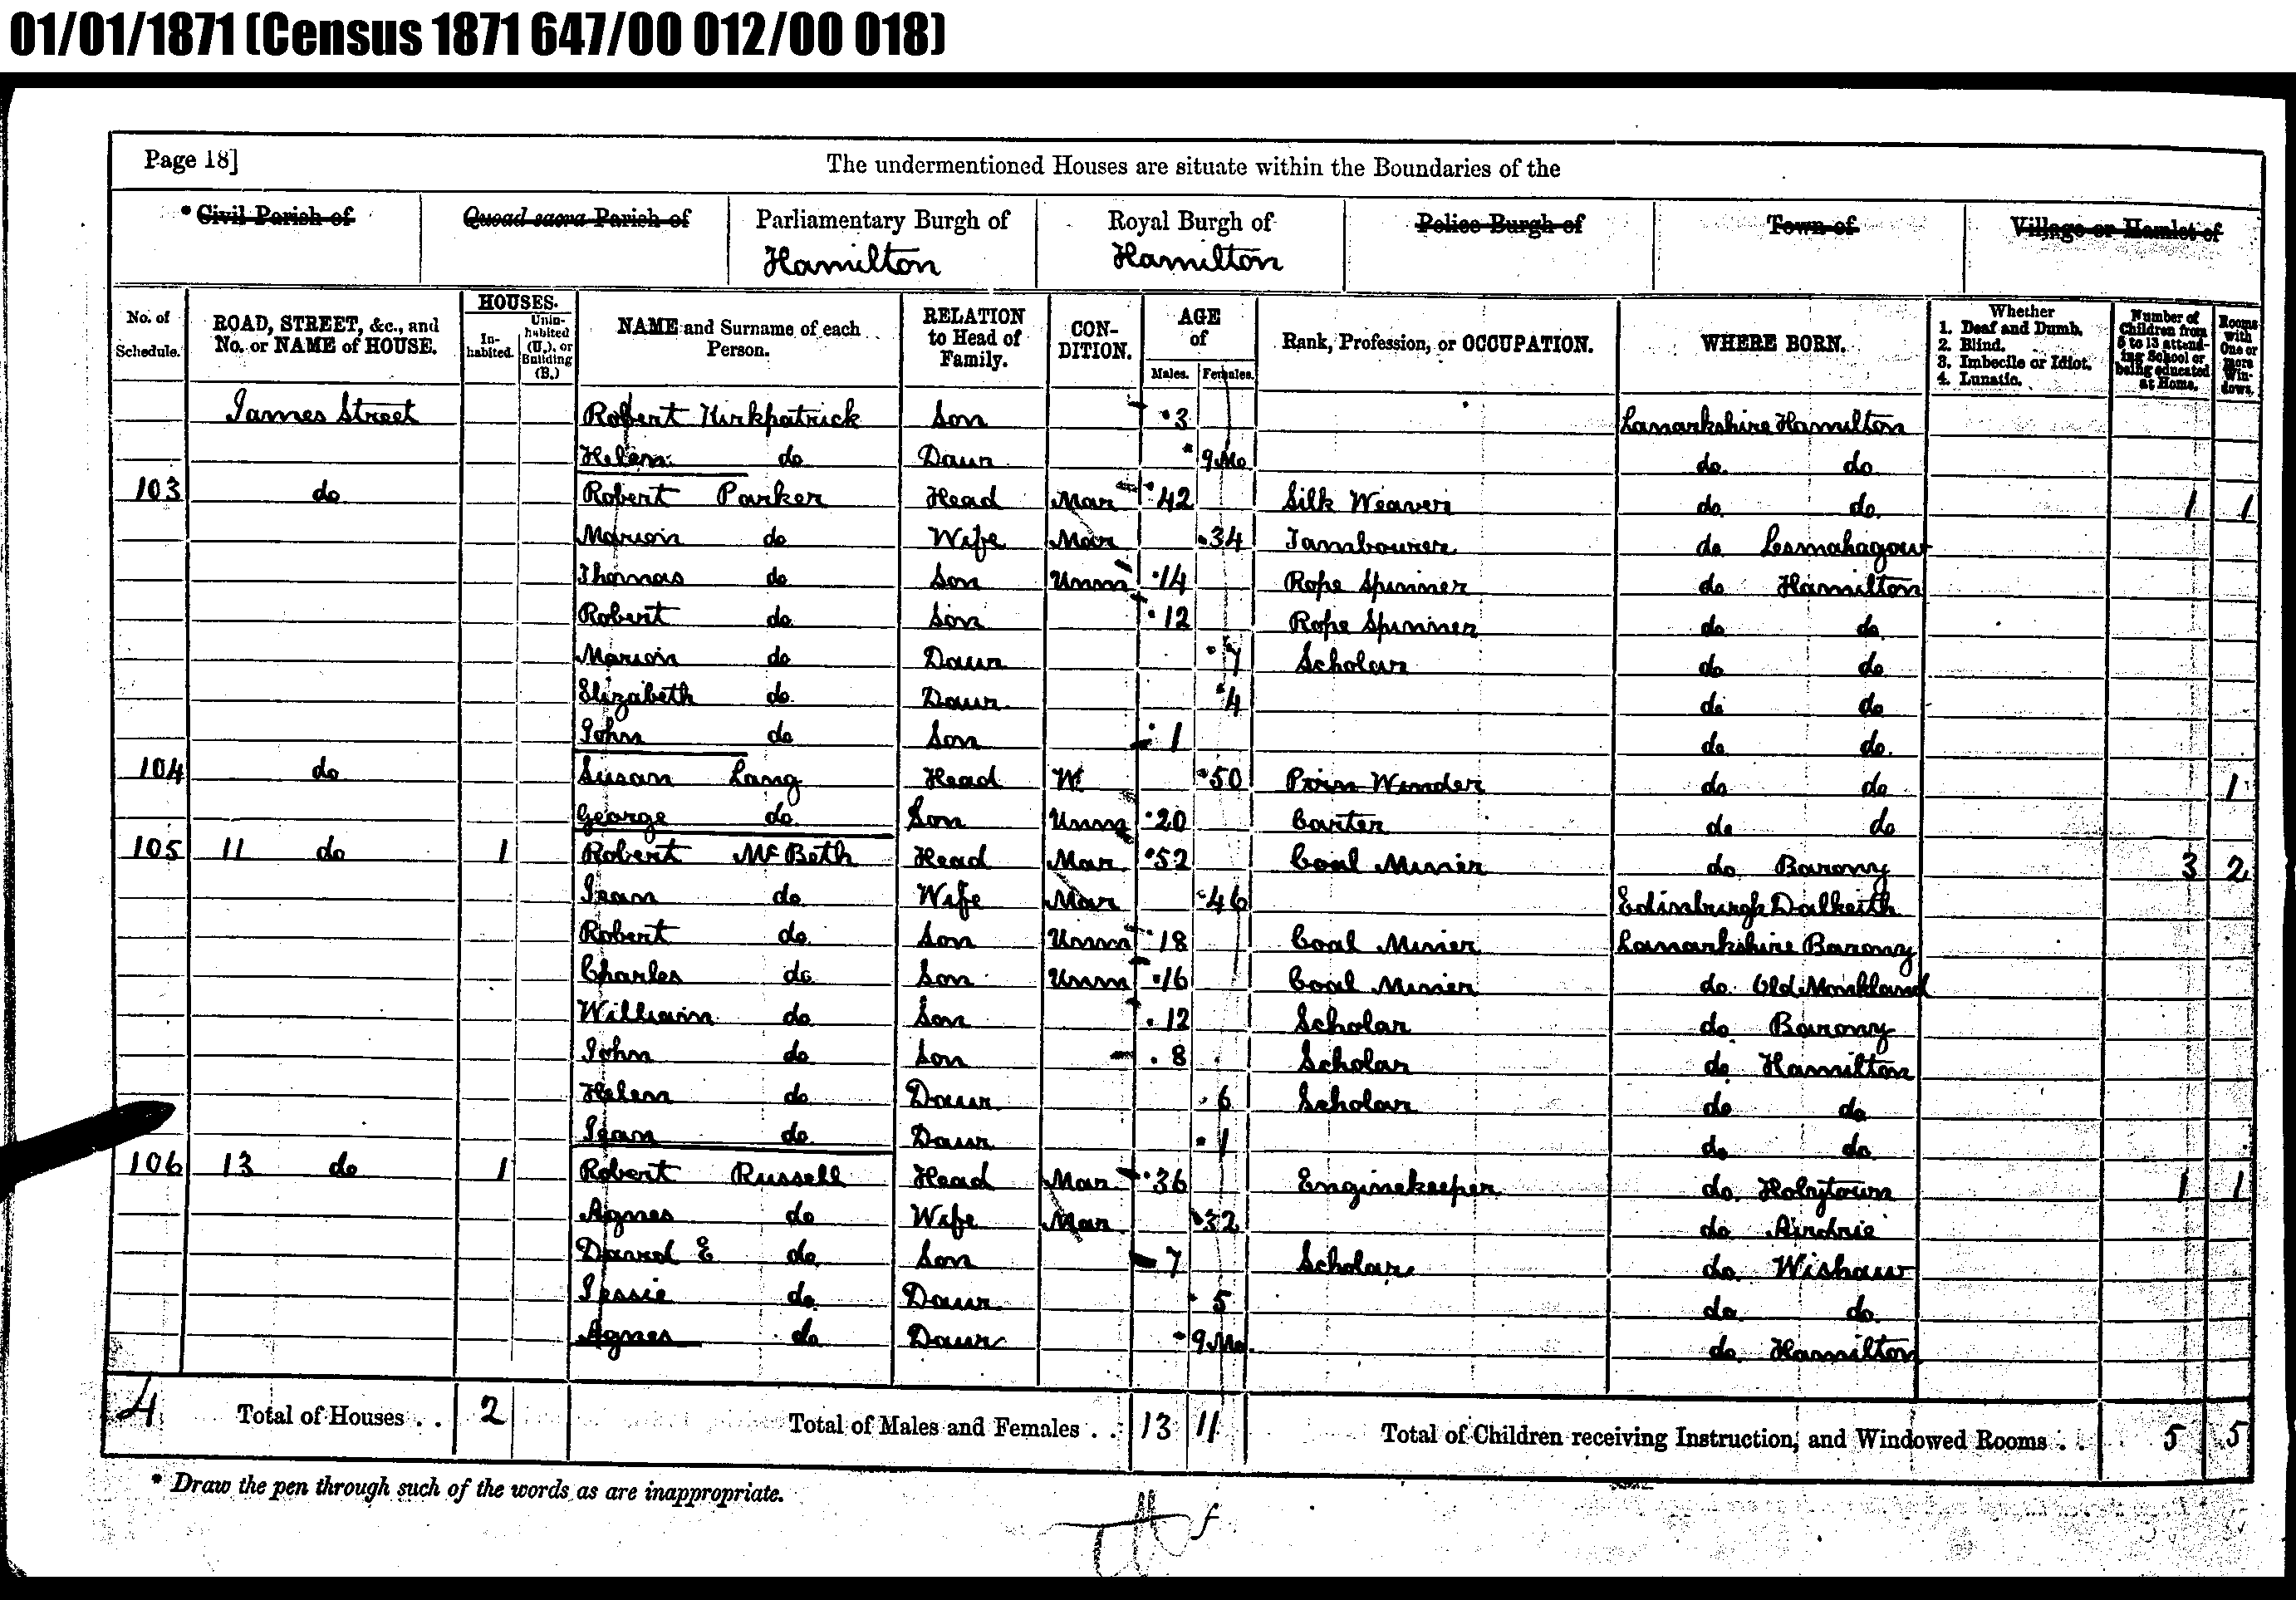 01/01/1871 (Census 1871 647/00 012/00 018)
Page 18]
The undermentioned Houses are situate within the Boundaries of the
* Civil Parish of Quoad sacra Parish of Parliamentary Burgh of Royal Burgh of Police Burgh of Town of Village or Hamlet of
Hamilton Hamilton
No. of Schedule. ROAD, STREET, &c., and No. or NAME of HOUSE. HOUSES. In-habited. Unin-habited (U.), or Building (B.) NAME and Surname of each Person. RELATION to Head of Family. CON-DITION. AGE of Males. Females. Rank, Profession, or OCCUPATION. WHERE BORN. Whether 1. Deaf and Dumb. 2. Blind. 3. Imbecile or Idiot. 4. Lunatic. Number of Children from 5 to 13 attend-ing School or being educated at Home. Rooms with One or more Win-dows.
James Street Robert Kirkpatrick Son 3 Lanarkshire Hamilton
Helen do Daur 9 Mo do do
103 do Robert Parker Head Mar 42 Silk Weaver do do 1 1
Marion do Wife Mar 34 Tambourer do Lesmahagow
Thomas do Son Unm 14 Rope Spinner do Hamilton
Robert do Son 12 Rope Spinner do do
Marion do Daur 7 Scholar do do
Elizabeth do Daur 4 do do
John do Son 1 do do
104 do Susan Lang Head W 50 Pirn Winder do do 1
George do Son Unm 20 Carter do do
105 11 do 1 Robert McBeth Head Mar 52 Coal Miner do Barony 3 2
Jean do Wife Mar 46 Edinburgh Dalkeith
Robert do Son Unm 18 Coal Miner Lanarkshire Barony
Charles do Son Unm 16 Coal Miner do Old Monkland
William do Son 12 Scholar do Barony
John do Son 8 Scholar do Hamilton
Helen do Daur 6 Scholar do do
Jean do Daur 1 do do
106 13 do 1 Robert Russell Head Mar 36 Enginekeeper do Holytown 1 1
Agnes do Wife Mar 32 do Airdrie
David E do Son 7 Scholar do Wishaw
Jessie do Daur 5 do do
Agnes do Daur 9 Mo do Hamilton
4 Total of Houses . . 2 Total of Males and Females . . 13 11 Total of Children receiving Instruction, and Windowed Rooms . . 5 5
* Draw the pen through such of the words as are inappropriate.